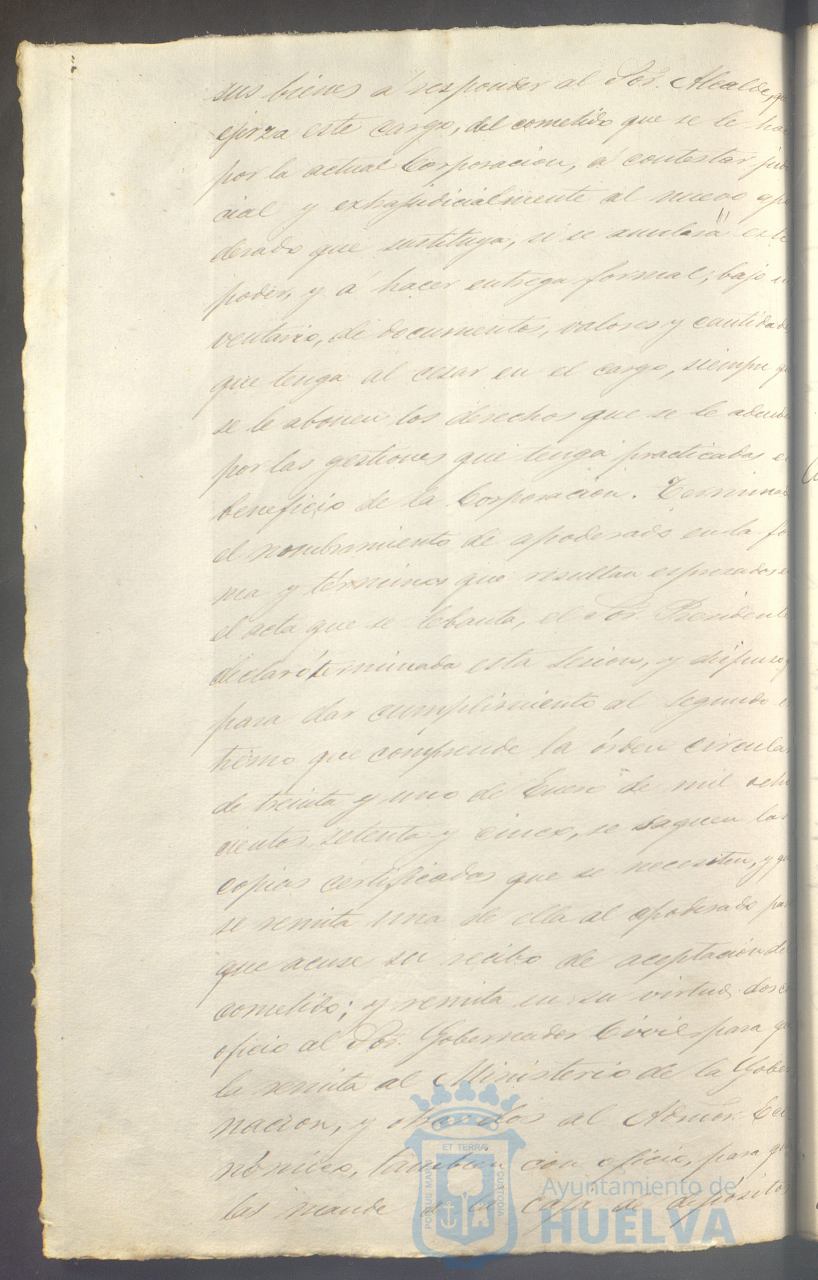 sus bienes á responder al Sor. Alcalde, q
ejerza este cargo, del cometido que se le ha
por la actual Corporacion, á contestar ju
cial y extrajudicialmente al nuevo apo
derado que sustituya, si se anulara este
poder, y á hacer entrega formal, bajo in
ventario, de documentos, valores y cantidades
que tenga al cesar en el cargo, siempre q
se le abonen los derechos que se le adeuden
por las gestiones que tenga practicadas en
beneficio de la Corporacion. Terminado
el nombramiento de apoderado en la for
ma y términos que resultan espresados en
el acta que se lebanta, el Sor. Presidente
declaró terminada esta sesion, y dispuso q
para dar cumplimiento al segundo es
tremo que comprende la órden circular
de treinta y uno de Enero de mil ocho
cientos setenta y cinco, se saquen las
copias certificadas que se necesiten, y que
se remita una de ella al apoderado para
que acuse su recibo de aceptacion del
cometido; y remita en su virtud dos con
oficio al Sor. Gobernador Civil para que
la remita al Ministerio de la Gober
nacion, y otras dos al Admor. Eco
nómico, tambien con oficio, para que
las mande á la Caja de depositos
PORTUS MARIS
ET TERRÆ
CUSTODIA
Ayuntamiento de
HUELVA